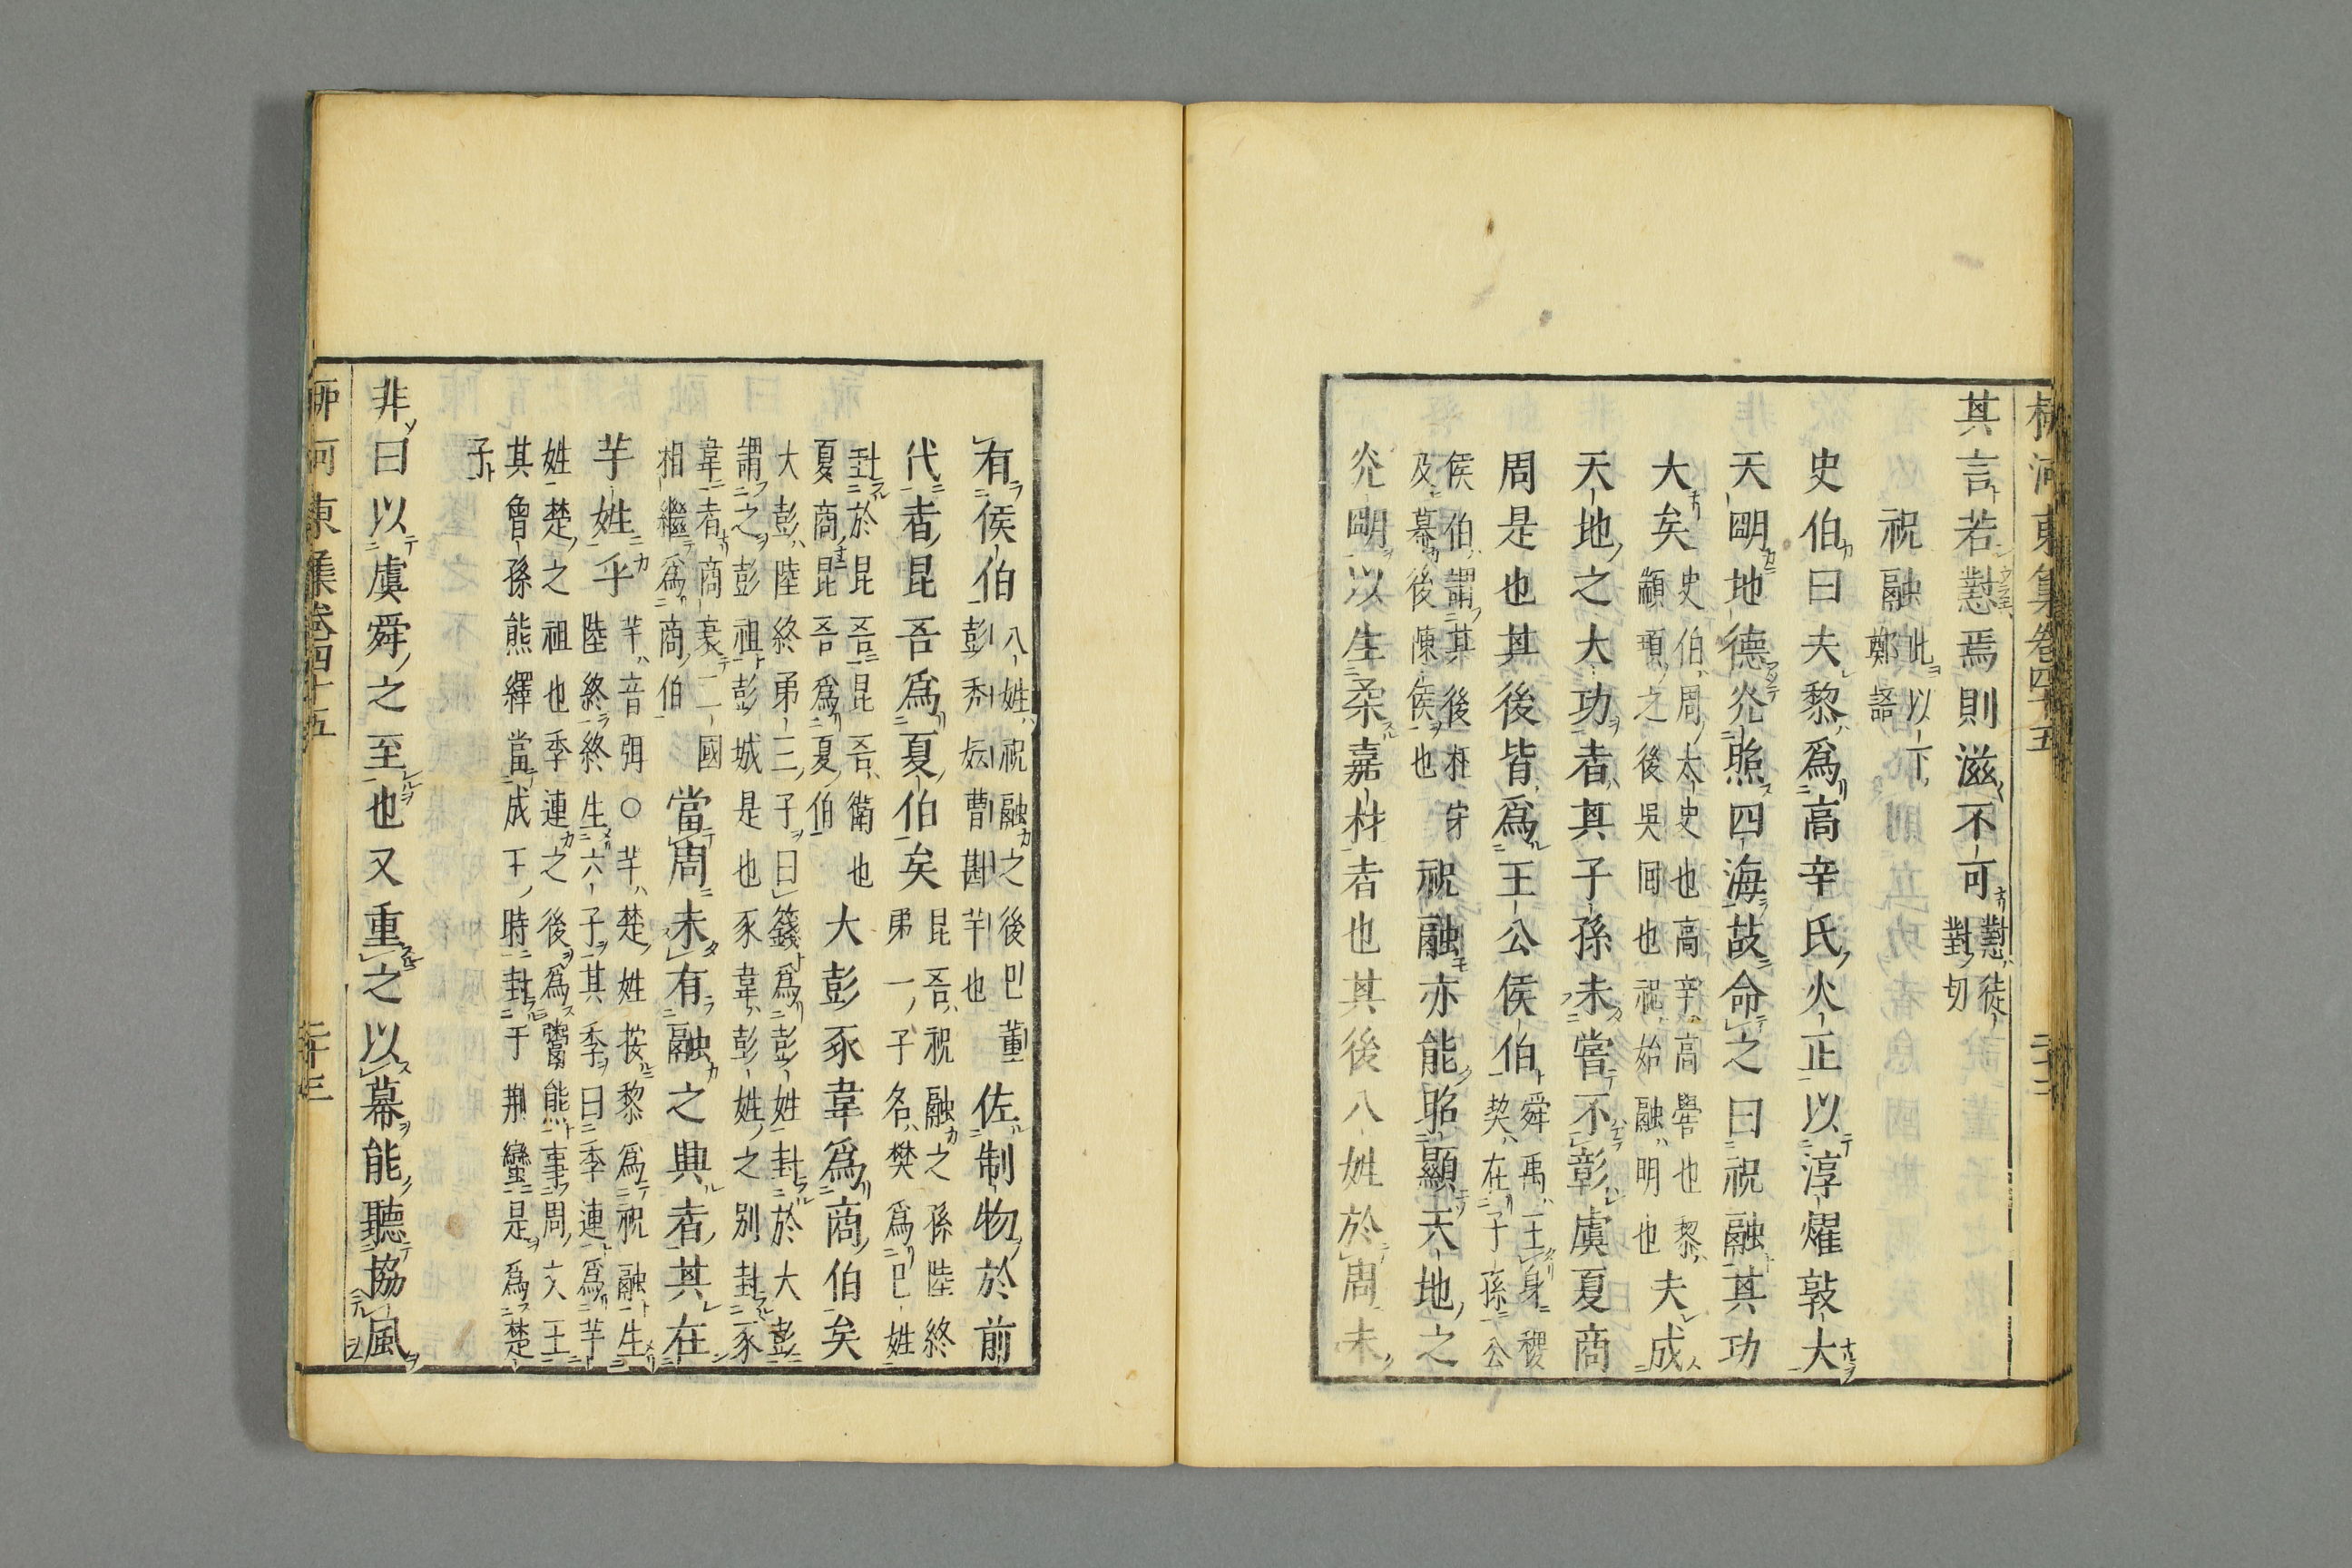 柳河東集卷四十五 二十二
其言若懟焉則滋不可
懟徒
對切
祝融
此以下
鄭語
史伯曰夫黎爲高辛氏火正以淳燿敦大
天明地德光照四海故命之曰祝融其功
大矣
史伯周太史也高辛高嚳也黎
顓頊之後吳回也祝始融明也
夫成
天地之大功者其子孫未嘗不彰虞夏商
周是也其後皆爲王公侯伯
舜禹王身稷
契在子孫公
侯伯謂其後
及幕後陳侯也
祝融亦能昭顯天地之
光明以生柔嘉材者也其後八姓於周未
有侯伯
八姓祝融之後巳董
彭秃妘曹斟芊也
佐制物於前
代者昆吾爲夏伯矣
昆吾祝融之孫陸終
弟一子名樊爲巳姓
封於昆吾昆吾衛也
夏商昆吾爲夏伯
大彭豕韋爲商伯矣
大彭陸終弟三子曰籛爲彭姓封於大彭
謂之彭祖彭城是也豕韋彭姓之別封豕
韋者商衰二國
相繼爲商伯
當周未有融之興者其在
芊姓乎
芊音弭○芊楚姓按黎爲祝融生
陸終終生六子其季曰季連爲芊
姓楚之祖也季連之後爲鬻熊事周文王
其曾孫熊繹當成王時封于荆蠻是爲楚
子
非曰以虞舜之至也又重之以幕能聽協風
柳河東集卷四十五 二十三